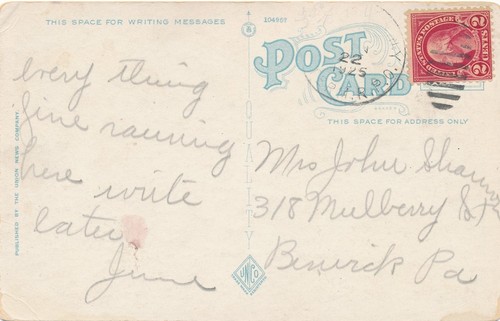 THIS SPACE FOR WRITING MESSAGES
104907
POST CARD
THIS SPACE FOR ADDRESS ONLY
UNITED STATES POSTAGE
2 CENTS 2
22
1925
N.Y.
PUBLISHED BY THE UNION NEWS COMPANY
QUALITY
UNCO
every thing
fine raining
here write
later
June
Mrs John
318 Mulberry St
Berwick Pa